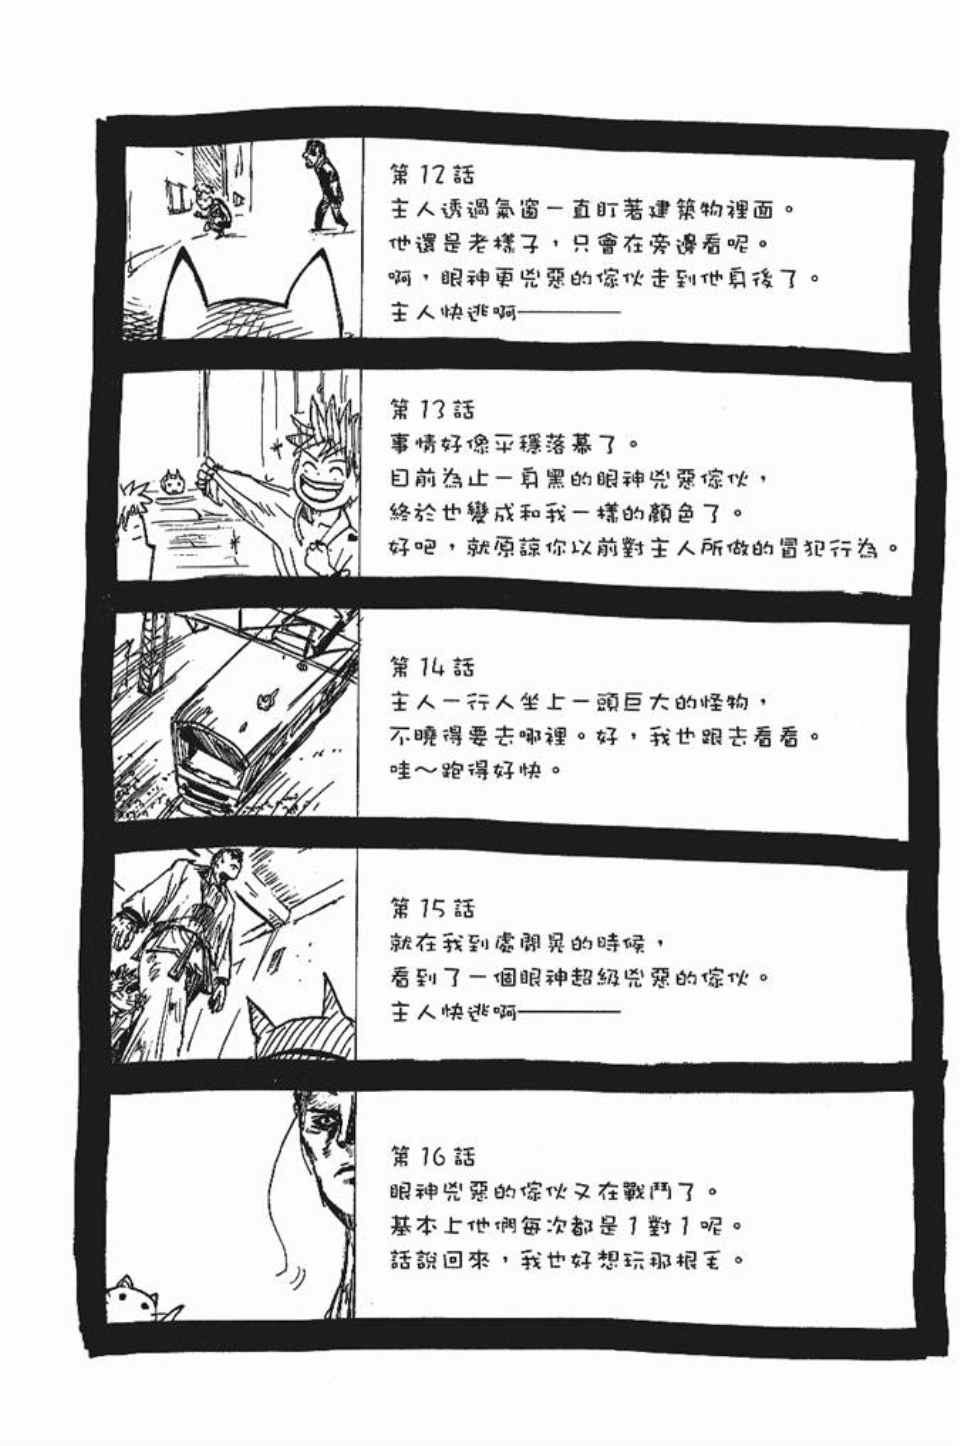 第12話
主人透過氣窗一直盯著建築物裡面。
他還是老樣子，只會在旁邊看呢。
啊，眼神更兇惡的傢伙走到他身後了。
主人快逃啊————
第13話
事情好像平穩落幕了。
目前為止一身黑的眼神兇惡傢伙，
終於也變成和我一樣的顏色了。
好吧，就原諒你以前對主人所做的冒犯行為。
第14話
主人一行人坐上一頭巨大的怪物，
不曉得要去哪裡。好，我也跟去看看。
哇～跑得好快。
第15話
就在我到處閒晃的時候，
看到了一個眼神超級兇惡的傢伙。
主人快逃啊————
第16話
眼神兇惡的傢伙又在戰鬥了。
基本上他們每次都是1對1呢。
話說回來，我也好想玩那根毛。